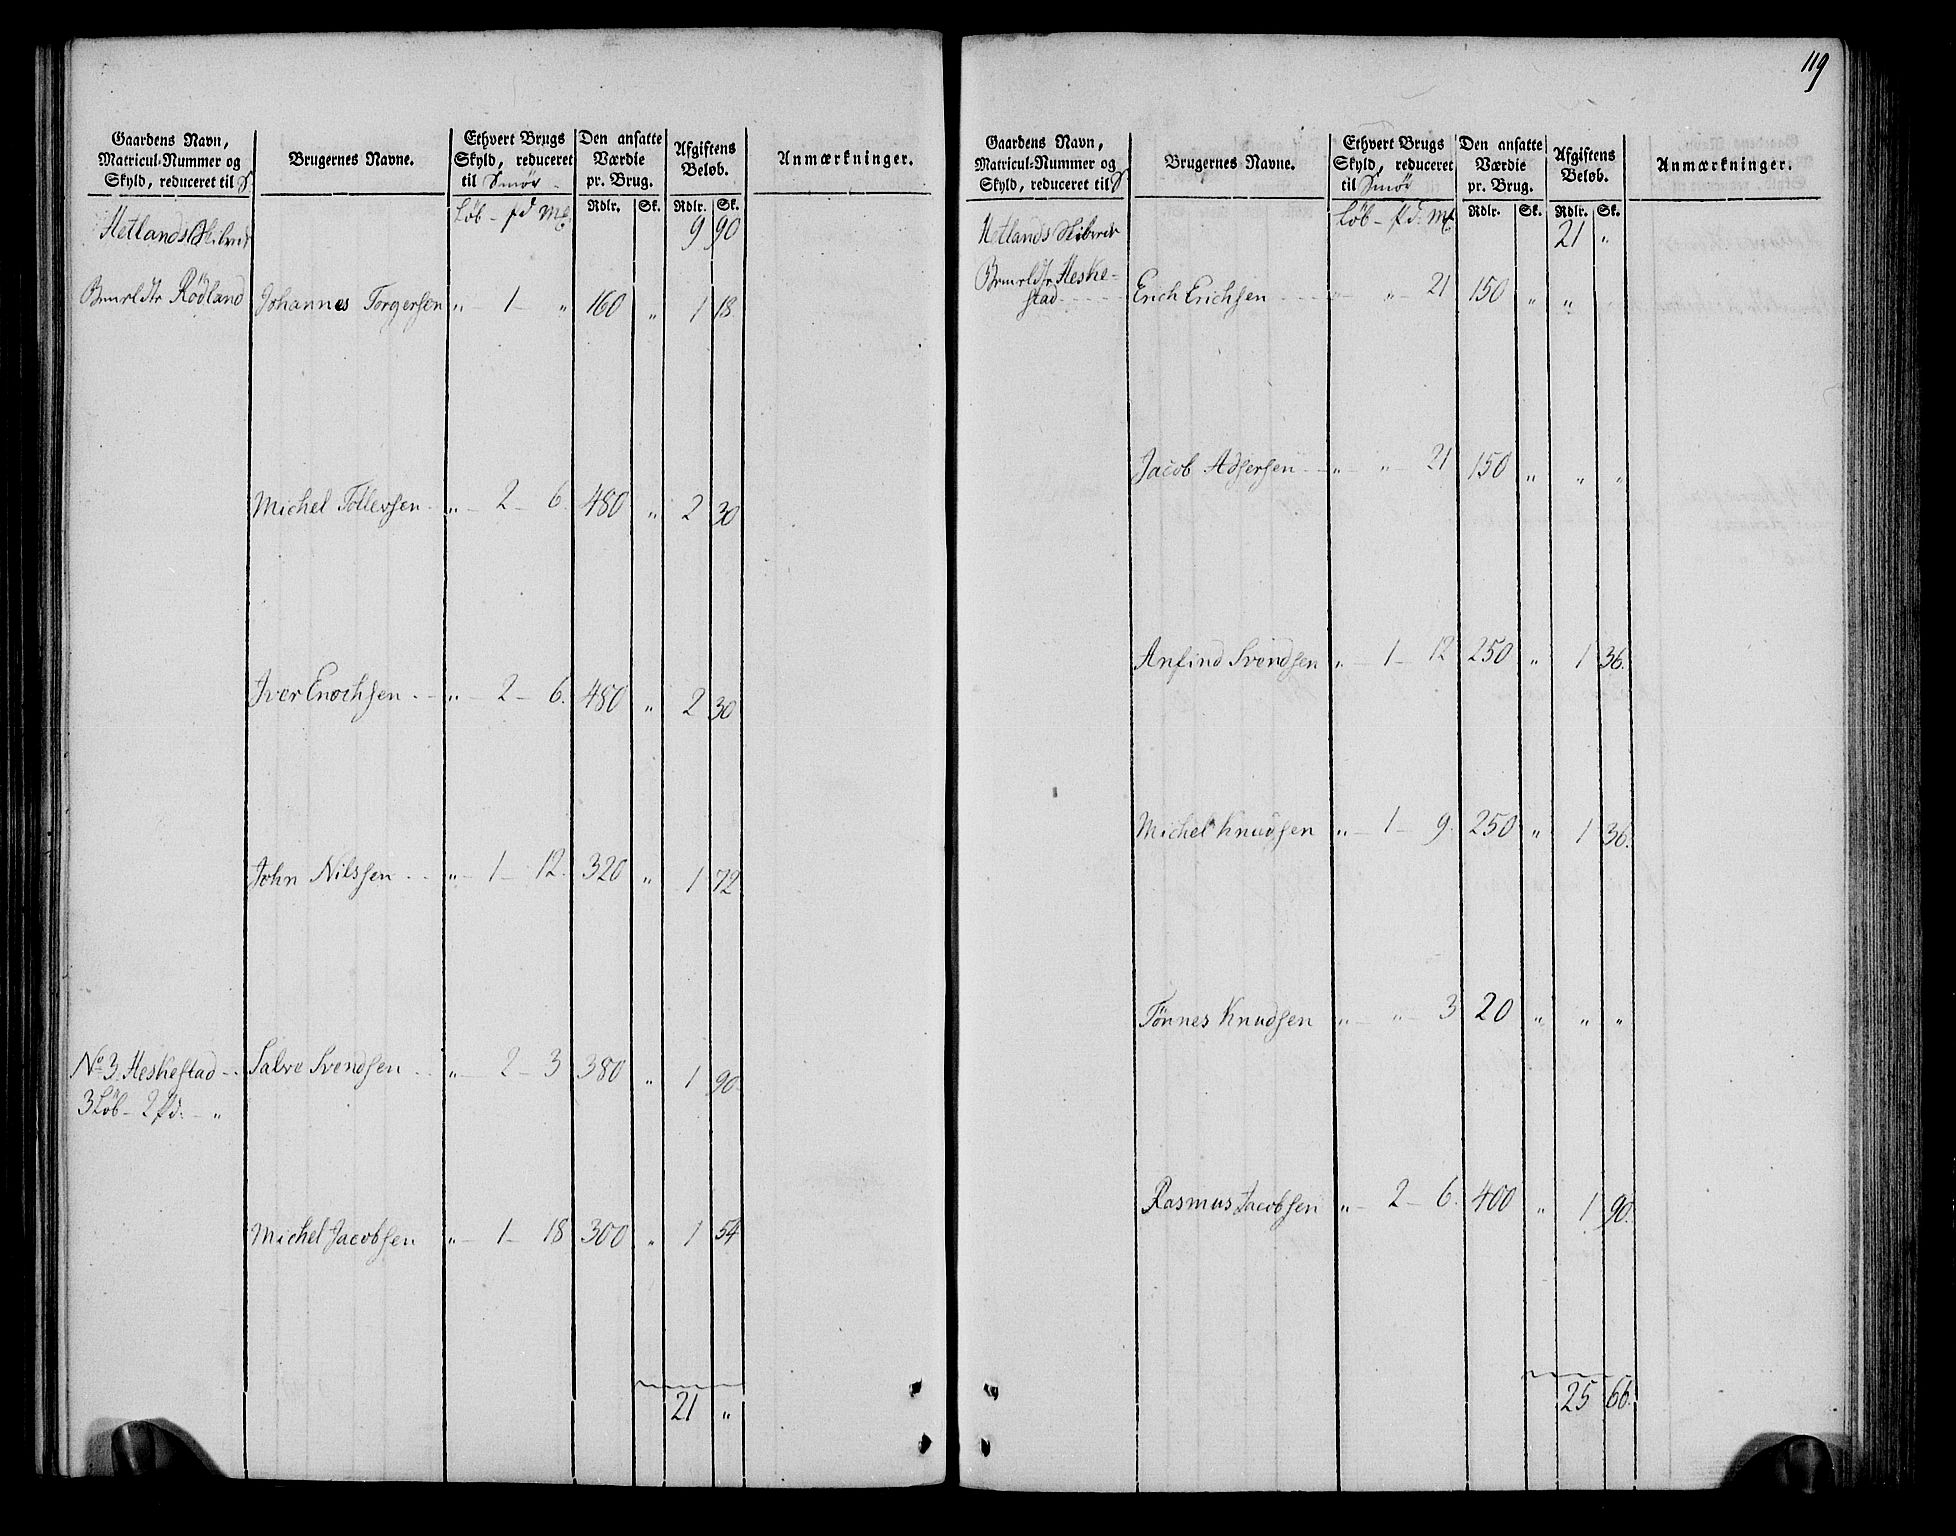 119
Gaardens Navn, Matricul-Nummer og Skyld, reduceret til S | Brugernes Navne. | Ethvert Brugs Skyld, reduceret til Smör | Den ansatte Værdie pr. Brug. | Afgiftens Beløb. | Anmærkninger.
Löb - pd Mk. | Rdlr. | Sk. | Rdlr. | Sk.
Hetlands Skibrede | 9 | 90
Rödland | Johannes Torgersen | „ - 1 - „ | 160 | „ | 1 | 18.
Michel Tollevsen - | „ - 2 - 6. | 480 | „ | 2 | 30
Iver Enochsen - | „ - 2 - 6. | 480 | „ | 2 | 30
John Nilssen - | „ - 1 - 12. | 320 | „ | 1 | 72
No 3. Heskestad - | Salve Svendsen - | „ - 2 - 3 | 380 | „ | 1 | 90
3 Löb - 2 pd. - „
Michel Jacobsen | „ - 1 - 18 | 300 | „ | 1 | 54
21 | „
Gaardens Navn, Matricul-Nummer og Skyld, reduceret til S | Brugernes Navne. | Ethvert Brugs Skyld, reduceret til Smör | Den ansatte Værdie pr. Brug. | Afgiftens Beløb. | Anmærkninger.
Löb - pd. Mk | Rdlr. | Sk. | Rdlr. | Sk.
Hetlands Skibrede | 21 | „
Heske-
stad - | Erich Erichsen - | „ - „ - 21 | 150 | „ | „
Jacob Adsersen - | „ - „ - 21 | 150 | „ | „ | „
Anfind Svendsen | „ - 1 - 12 | 250 | „ | 1 | 36.
Michel Knudsen | „ - 1 - 9. | 250 | „ | 1 | 36.
Tönnes Knudsen | „ - „ - 3 | 20 | „ | „ | „
Rasmus Jacobsen | „ - 2 - 6. | 400 | „ | 1 | 90.
25 | 66.